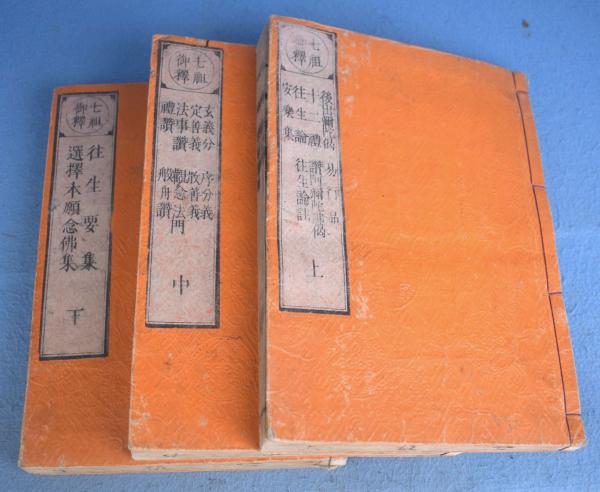 七祖
御釋
後出彌陀偈 易行品
十二禮 讚阿彌陀佛偈
往生論 往生論註
安樂集
上
七祖
御釋
玄義分 序分義
定善義 散善義
法事讚 觀念法門
禮讚 般舟讚
中
七祖
御釋
往生要集
選擇本願念佛集
下